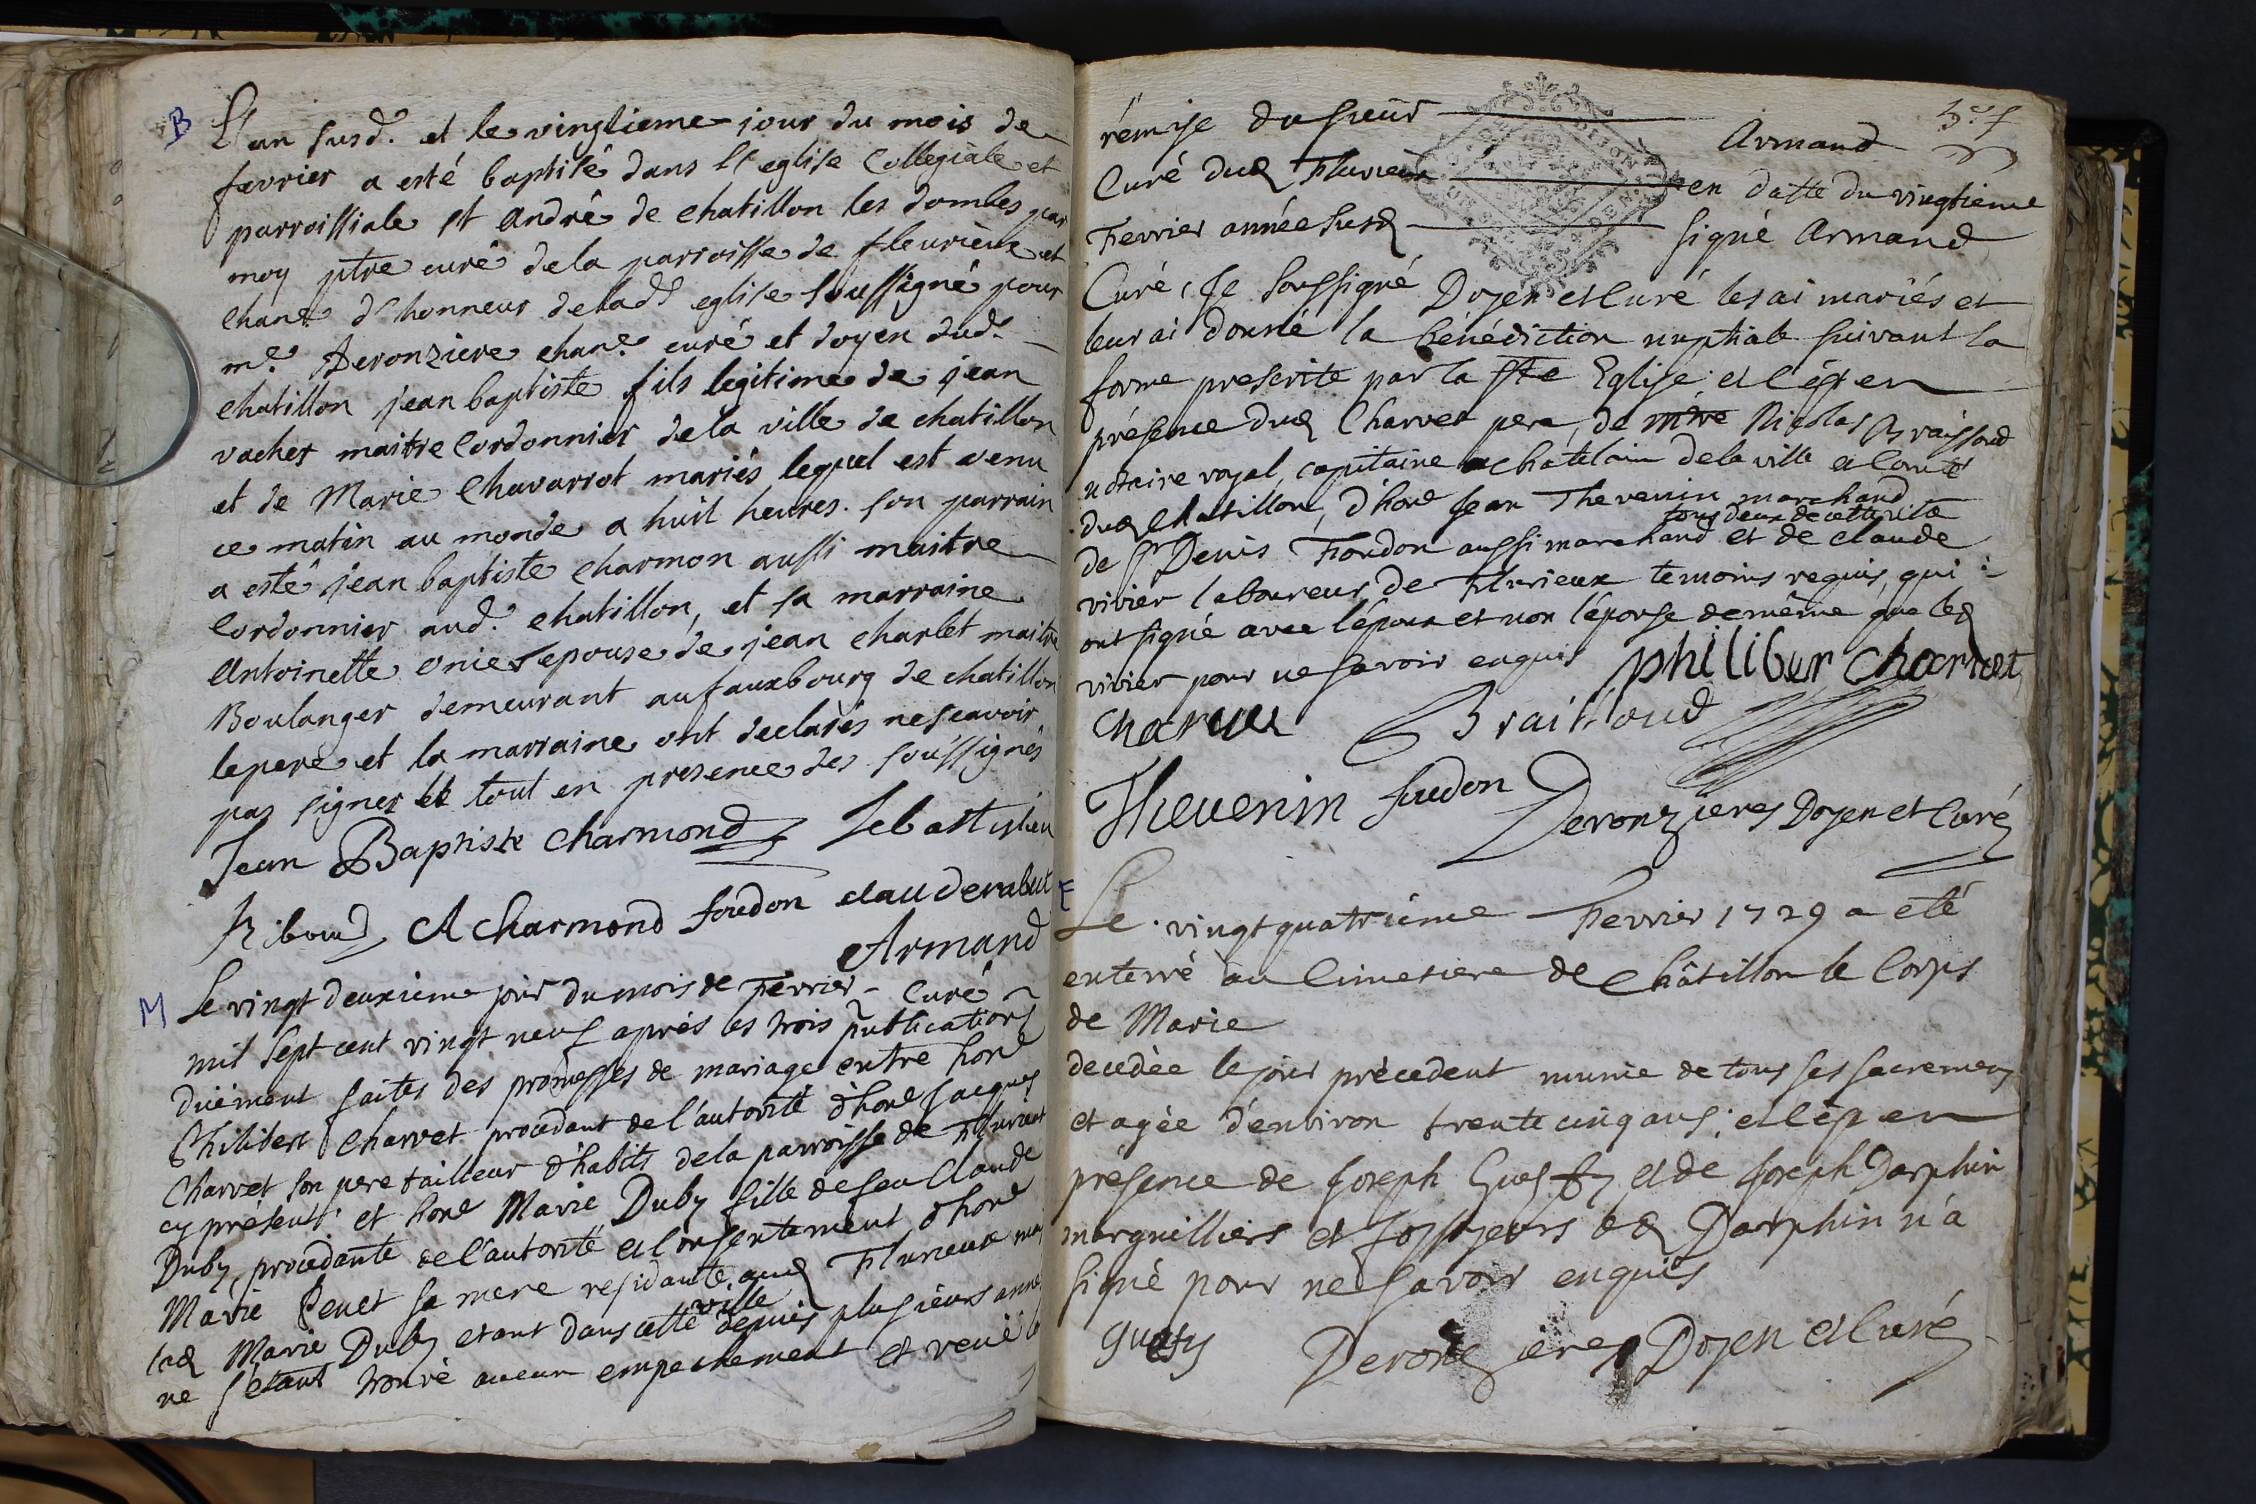 B
L'an susd. et le vingtieme jour du mois de
fevrier a esté baptisé dans l'eglise collegiale et
parroissiale st andré de chatillon les dombes par
moy ptre curé de la parroisse de fleurieux et
chane. d'honneur de lade eglise soussigné pour
me. Deronziere chane. curé et doyen dud.
chatillon jean baptiste fils legitime de jean
vacher maitre cordonnier de la ville de chatillon
et de Marie chavarrot mariés lequel est venu
ce matin au monde a huit heures. son parrain
a esté jean baptiste charmon aussi maitre
cordonnier aud. chatillon, et sa marraine
antoinette onier epouse de jean charlet maitre
Boulanger demeurant au fauxbourg de chatillon
le pere et la marraine ont declarés ne scavoir
pas signer le tout en presence des soussignés
Jean Baptiste charmond Sebastislien
Riboud A charmond foudon claude rabut
Armand
M
Le vingt deuxieme jour du mois de Fevrier - Curé
mil sept cent vingt neuf aprés les trois publications
düement faites des promesses de mariage entre hone
Philibert Charvet procedant de l'autorité d'hone Jacques
Charvet son pere tailleur d'habits de la parroisse de Flurieux
cy présent: et hone Marie Duby fille de feu Claude
Duby, procedante de l'autorité et consentement d'hone
Marie Penet sa mere residante aud Flurieux mais
lad Marie Duby etant dans cette ville depuis plusieurs année
ne s'étant trouvé aucun empechement et veuë la
rémise du sieur Armand
Curé dud Flurieux en datte du vingtième
Fevrier année susd signé Armand
Curé, Je soussigné Doyen et Curé les ai mariés et
leur ai donné la bénédiction nuptiale suivant la
forme prescrite par la Ste Eglise et ce en
présence dud Charvet pere, de mtre Nicolas Braissoud
notaire royal, capitaine chatelain de la ville et Comté
dud Chatillon, d'hone Jean Thevenin marchand
tous deux de cette ville
de sr Denis Foudon aussi marchand et de claude
vivier laboureur de Flurieux temoins requis, qui
ont signé avec l'époux et non l'épouse de même que led
vivier pour ne savoir enquis philiber charvet
charvet Braissoud
Thevenin foudon Deronzieres Doyen et Curé
F
Le vingt quatriéme Fevrier 1729 a eté
enterré au Cimetiere de Châtillon le Corps
de Marie
decedèe le jour précedent munie de tous ses sacremens
et agèe d'environ trente cinq ans; et ce en
présence de Joseph Guesty et de Joseph Darphin
marguilliers et fossoyeurs led Darphin n'a
signé pour ne savoir enquis
guesty Deronzieres Doyen et Curé